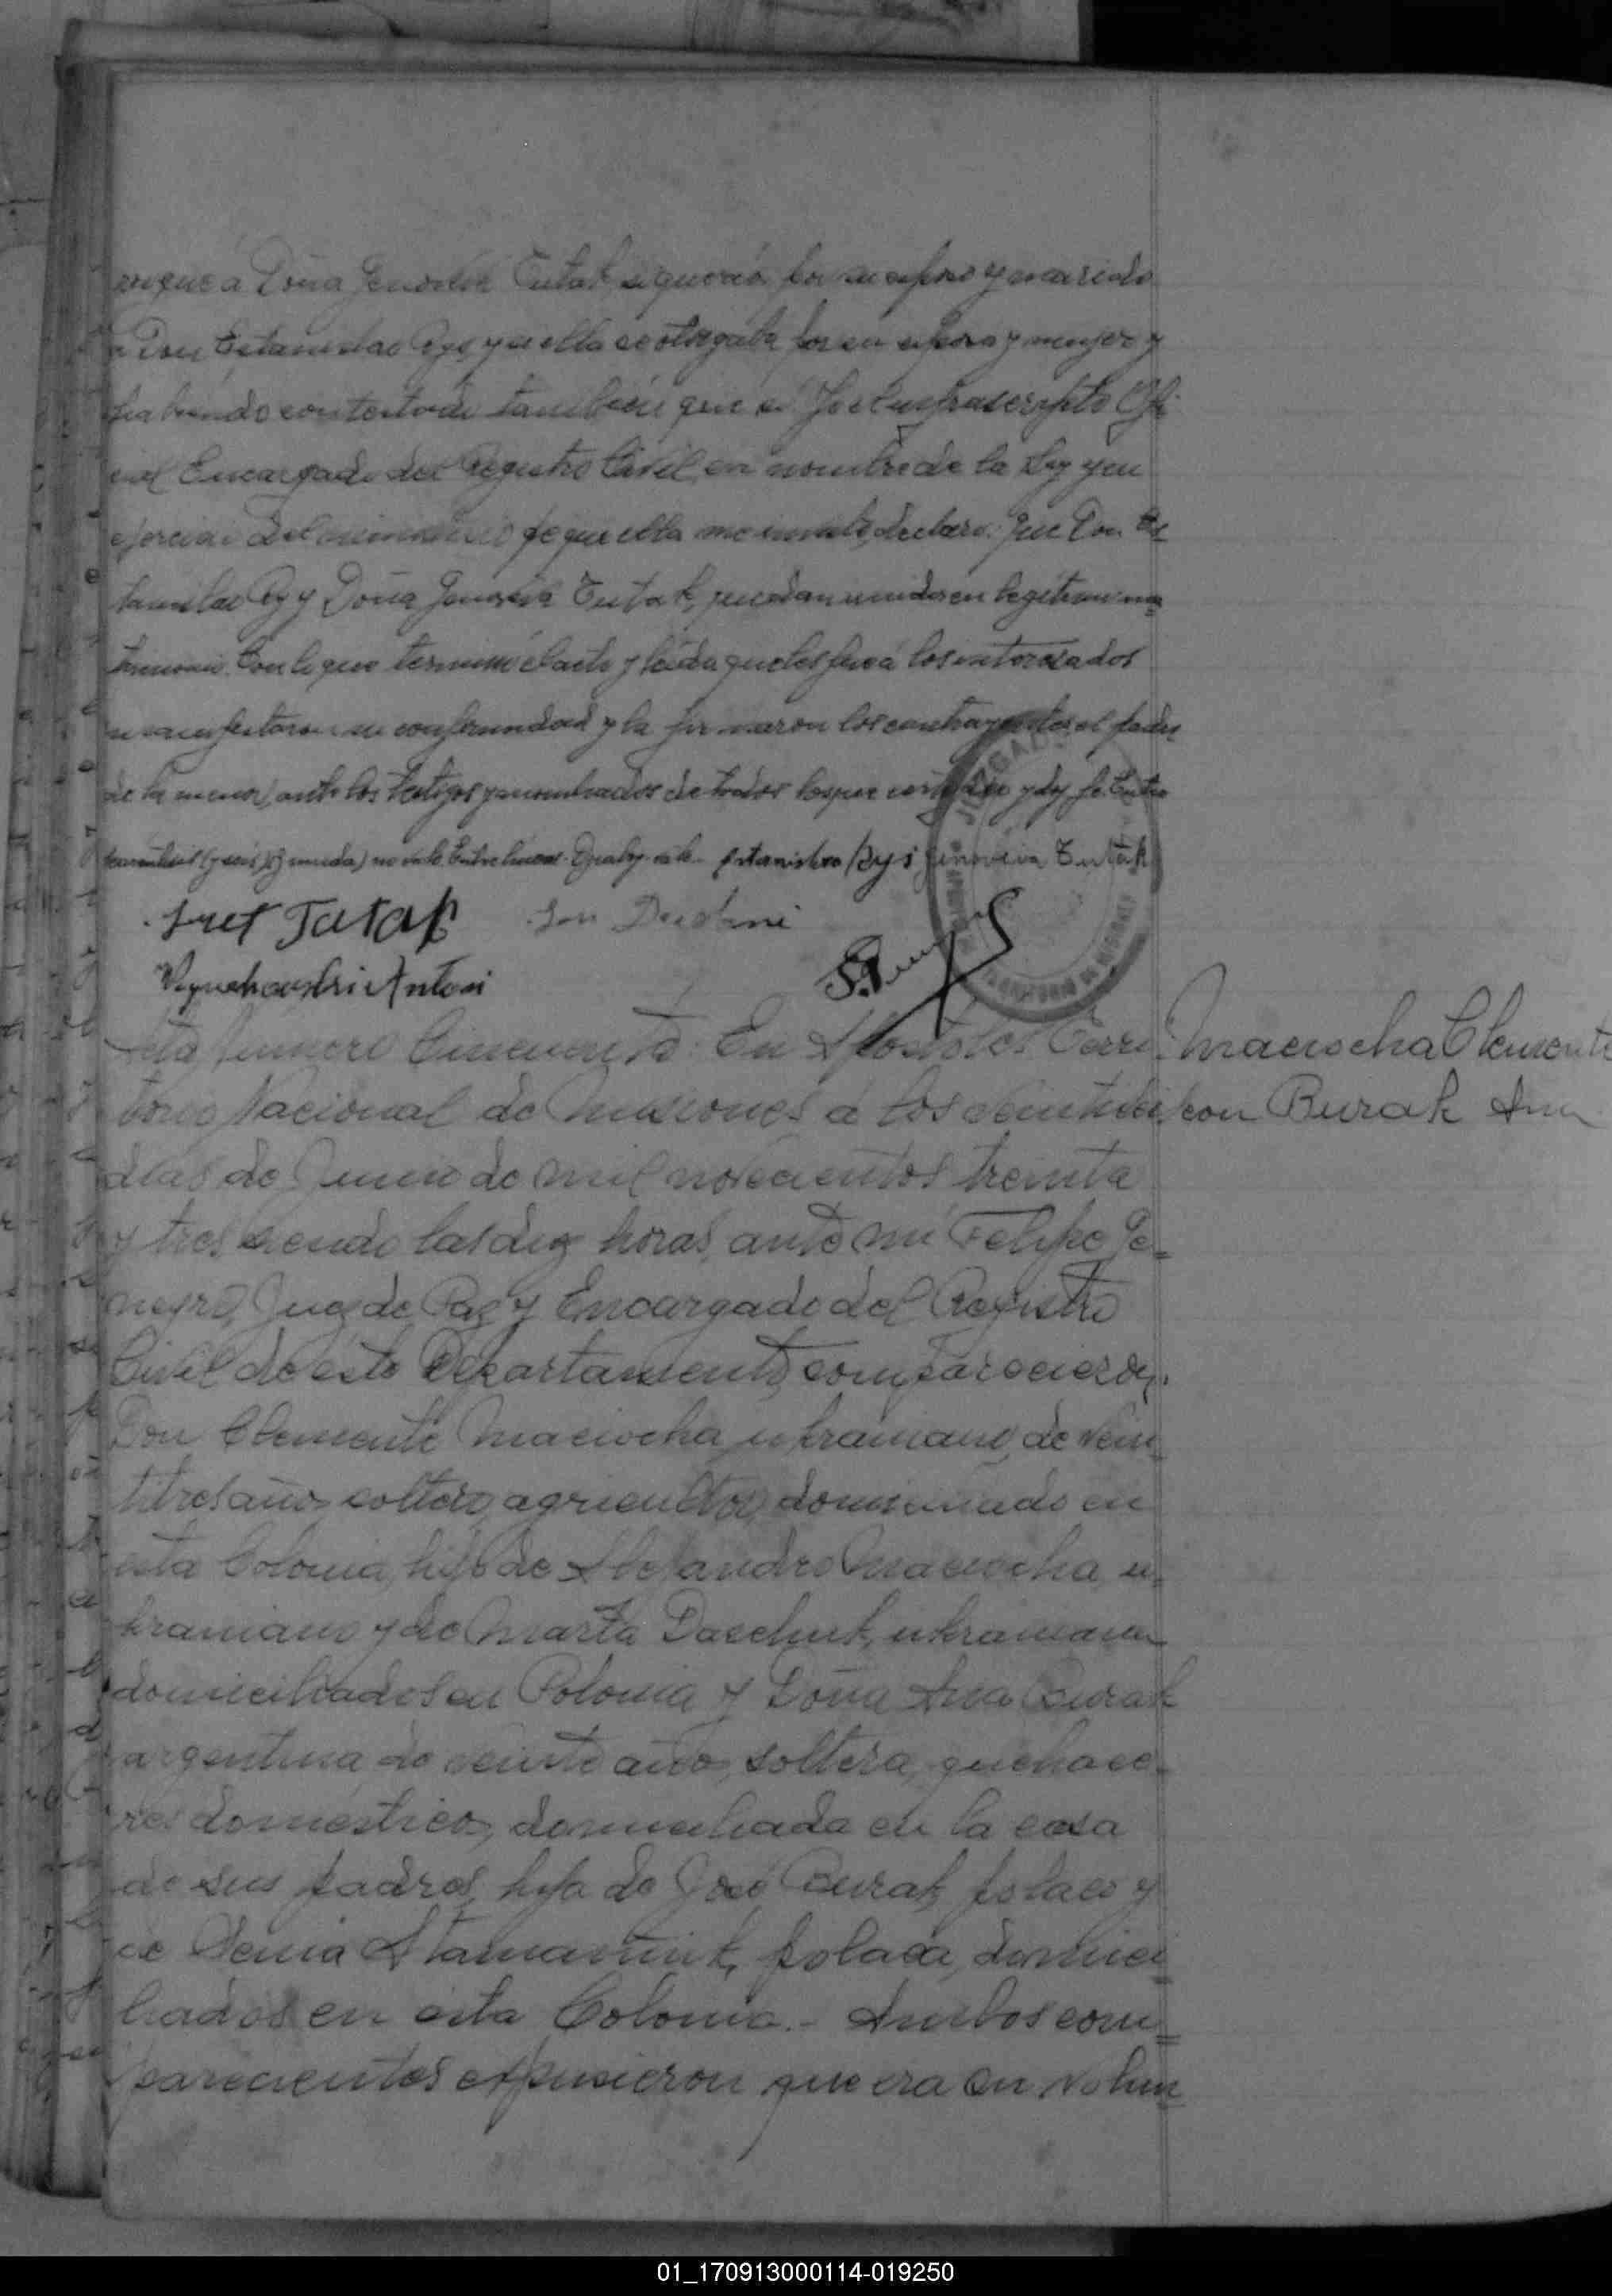 que á Doña Genoveva Tutak, si quería por su esposo y marido
a Don Estanislao Rys y a ella se otorgaba por su esposa y mujer y
habiendo contestado también que si. Yo el infrascripto Ofi
cial Encargado del Registro Civil, en nombre de la Ley y en
ejercicio del ministerio que ella me inviste, declaro: Que Don Es
tanislao Rys y Doña Genoveva Tutak, quedan unidos en legítimo ma
trimonio. Con lo que terminó el acto y leída que les fué á los interesados
manifestaron su conformidad y la firmaron los contrayentes, el padre
de la menor, ante los testigos nombrados de todos los que certifico y doy fe. Entre
no vale Entre líneas vale. Estanislao Rys Genoveva Tutak
Jusef Tutak Jan
Antoni
Acta número Cincuenta: En Apóstoles Terri
torio Nacional de Misiones á los veintiseis
dias de Junio de mil novecientos treinta
y tres, siendo las diez horas, ante mi Felipe Pe=
neyro, Juez de Paz y Encargado del Registro
Civil de este Departamento, comparecieron:
Don Clemente Maciocha, ukraniano, de vein
titres años, soltero, agricultor, domiciliado en
esta Colonia, hijo de Alejandro Maciocha, u=
kraniano y de Marta Daschuk, ukraniana
domiciliados en Polonia y Doña Ana Burak
argentina, de veinte años, soltera, quehace=
res domésticos, domiciliada en la casa
de sus padres, hija de José Burak, polaco y
de Xenia Atamaniuk, polaca, domici
liados en esta Colonia.- Ambos com=
parecientes expusieron que era su volun
Maciocha Clemente
con Burak Ana